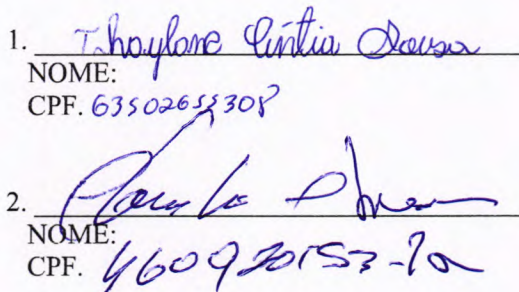 1. Thaylane Cintia Sousa
NOME:
CPF. 63502655308
2.
NOME:
CPF. 460920153-